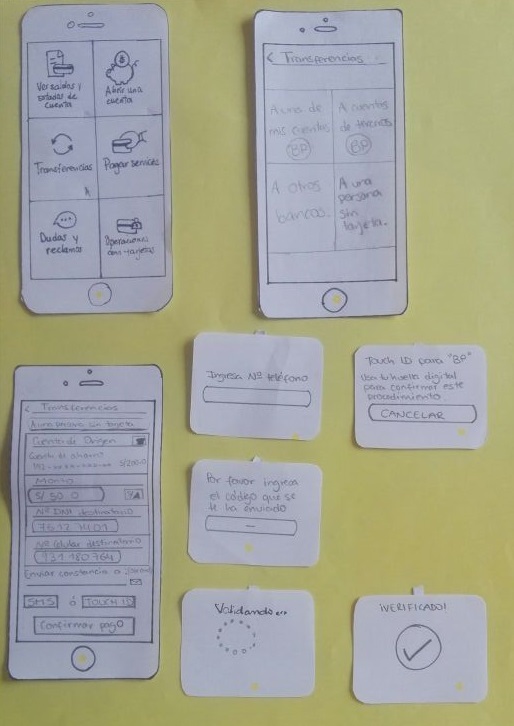 Ver saldos y
estados de
cuenta
Abrir una
cuenta
Transferencias
Pagar servicios
Dudas y
reclamos
Operaciones
con tarjetas
< Transferencias
A una de
mis cuentas
BP
A cuentas
de terceros
BP
A otros
bancos.
A una
persona
sin
tarjeta.
< Transferencias
A una persona sin tarjeta
Cuenta de Origen
Monto
S/ 50.0
Nº DNI destinatario
Nº Celular destinatario
931 180 764
Enviar constancia a
SMS ó TOUCH ID
Confirmar pago
Ingresa Nº teléfono
Touch ID para "BP"
Usa tu huella digital
para confirmar este
procedimiento
CANCELAR
Por favor ingresa
el código que se
te ha enviado
Validando...
¡VERIFICADO!